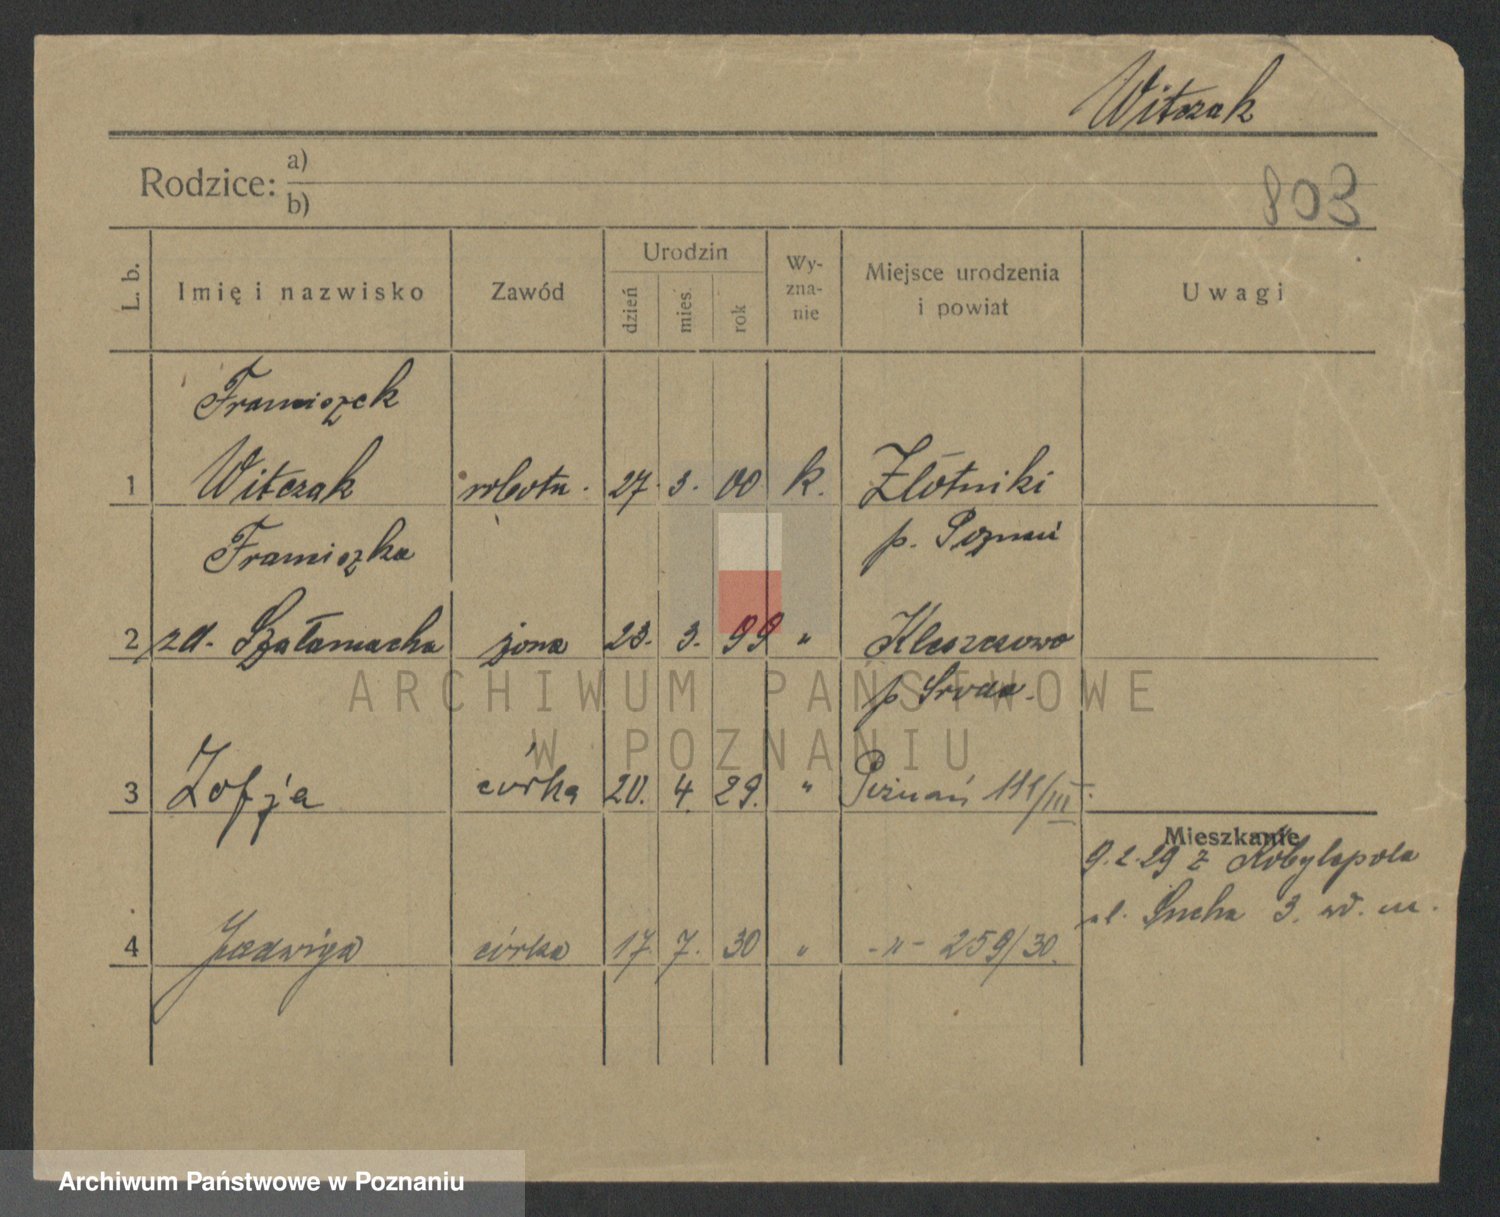 Witczak
Rodzice: a)
b)
803
L. b.
Imię i nazwisko
Zawód
Urodzin
dzień
mies.
rok
Wy-
zna-
nie
Miejsce urodzenia
i powiat
Uwagi
Franciszek
1 Witczak robotn. 27. 3. 00 k. Złotniki
p. Poznań
Franciszka
2 zd. Szałamacha żona 23. 3. 99 " Kleszczewo
p Środa.
3 Zofja córka 20. 4. 29. " Poznań /III.
Mieszkanie
9.2.29 z Kobylepola
ul. Sucha 3. wł. m.
4 Jadwiga córka 17. 7. 30 " -"- 259/30.
ARCHIWUM PAŃSTWOWE
W POZNANIU
Archiwum Państwowe w Poznaniu